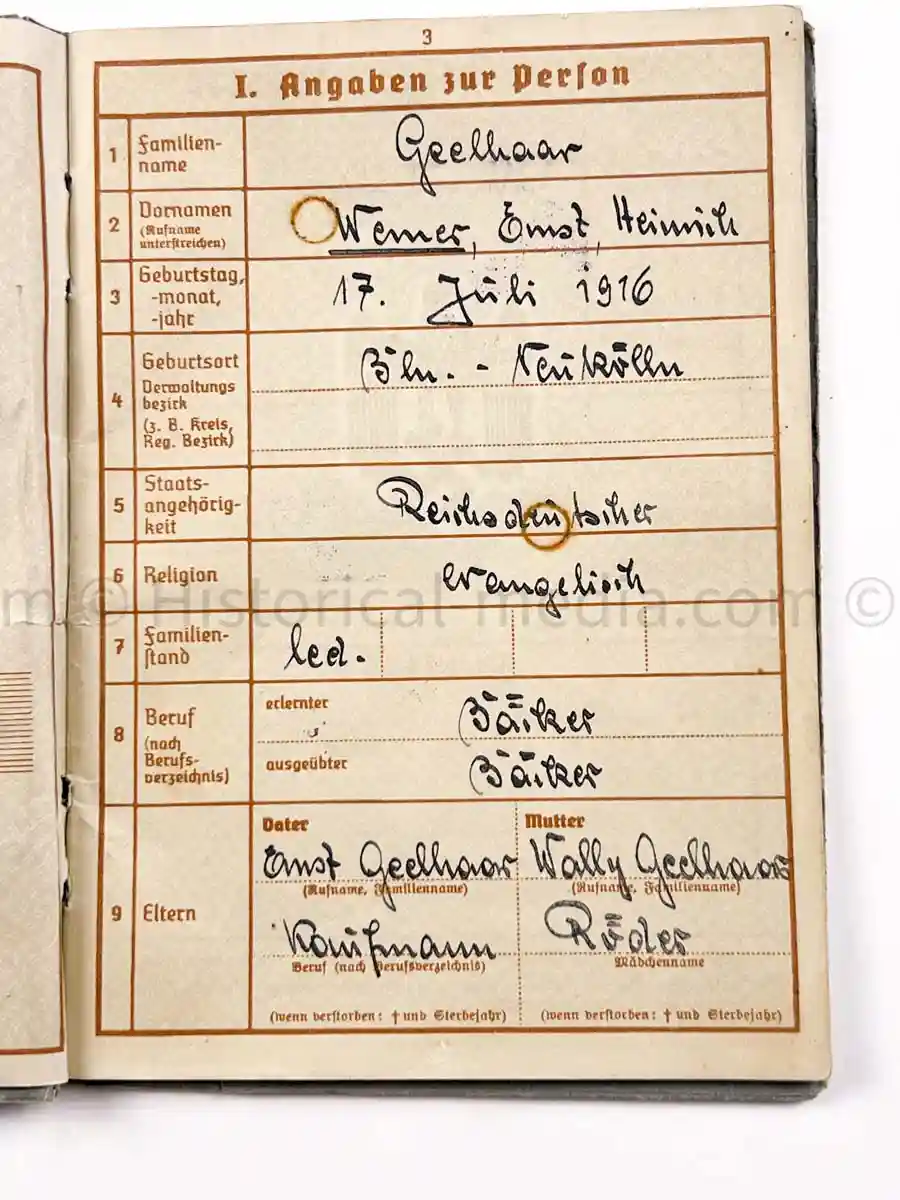 3
I. Angaben zur Person
1 Familien-
name
Geelhaar
2 Vornamen
(Rufname
unterstreichen)
Werner, Ernst, Heinrich
3 Geburtstag,
-monat,
-jahr
17. Juli 1916
4 Geburtsort
Verwaltungs
bezirk
(z. B. Kreis,
Reg. Bezirk)
Bln. - Neukölln
5 Staats-
angehörig-
keit
Reichsdeutscher
6 Religion
evangelisch
m © Historical-media.com ©
7 Familien-
stand
led.
8 Beruf
(nach
Berufs-
verzeichnis)
erlernter
Bäcker
ausgeübter
Bäcker
9 Eltern
Vater
Ernst Geelhaar
(Rufname, Familienname)
Kaufmann
Beruf (nach Berufsverzeichnis)
(wenn verstorben: † und Sterbejahr)
Mutter
Wally Geelhaar
(Rufname, Familienname)
Röder
Mädchenname
(wenn verstorben: † und Sterbejahr)